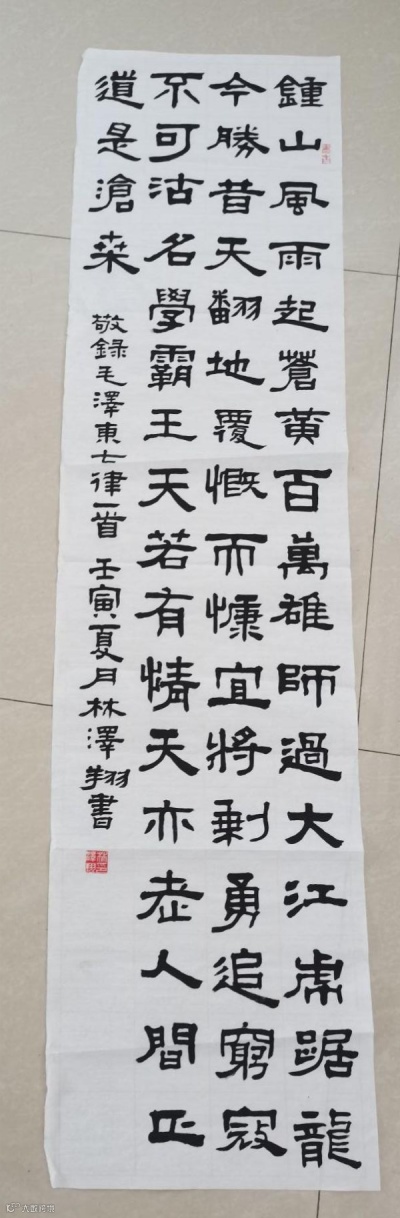 鍾山風雨起蒼黃百萬雄師過大江虎踞龍
今勝昔天翻地覆慨而慷宜將剩勇追窮寇
不可沽名學霸王天若有情天亦老人間正
道是滄桒
敬錄毛澤東七律一首 壬寅夏月林澤翔書